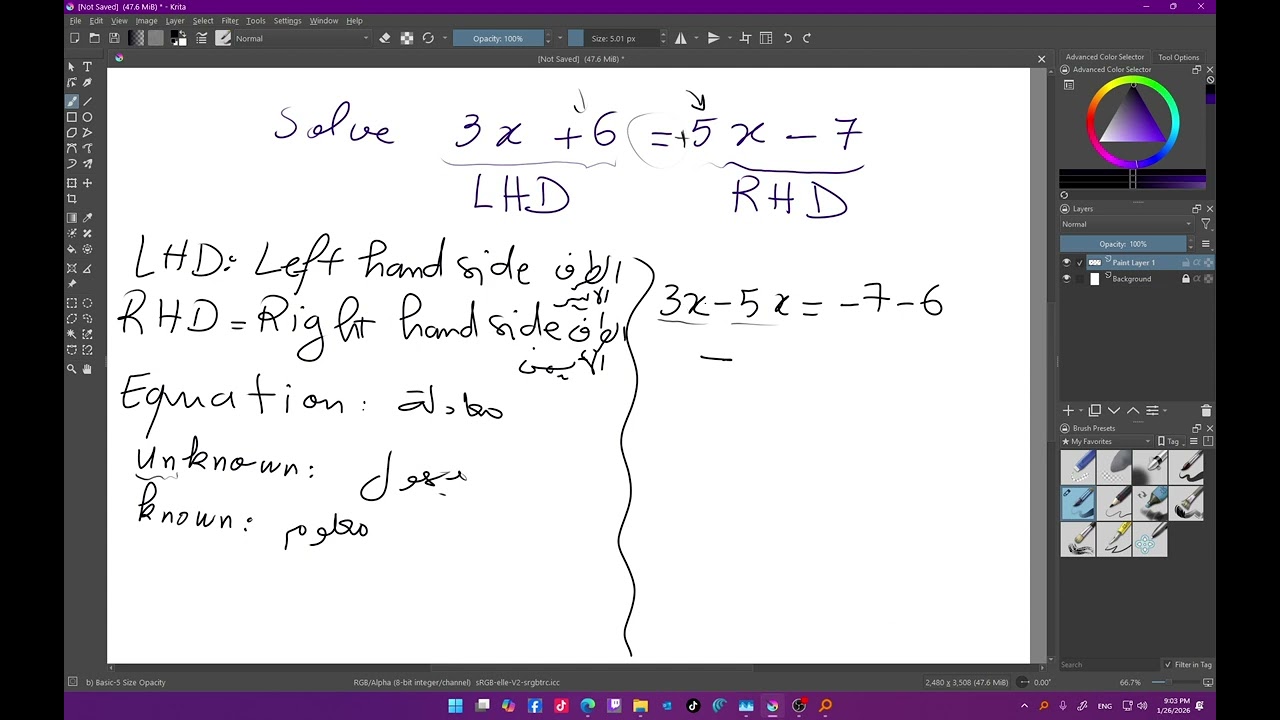 [Not Saved] (47.6 MiB) * - Krita
File Edit View Image Layer Select Filter Tools Settings Window Help
Normal Opacity: 100% Size: 5.01 px
[Not Saved] (47.6 MiB) *
Solve 3x + 6 = +5x - 7
LHD RHD
LHD: Left hand side الطرف الأيسر
RHD = Right hand side الطرف الأيمن
Equation: معادلة
unknown: مجهول
known: معلوم
3x - 5x = -7 - 6
-
Advanced Color Selector Tool Options
Advanced Color Selector
Layers
Normal
Opacity: 100%
Paint Layer 1
Background
Brush Presets
My Favorites Tag
Search Filter in Tag
b) Basic-5 Size Opacity RGB/Alpha (8-bit integer/channel) sRGB-elle-V2-srgbtrc.icc 2,480 x 3,508 (47.6 MiB) 0.00° 66.7%
9:03 PM
1/26/2026